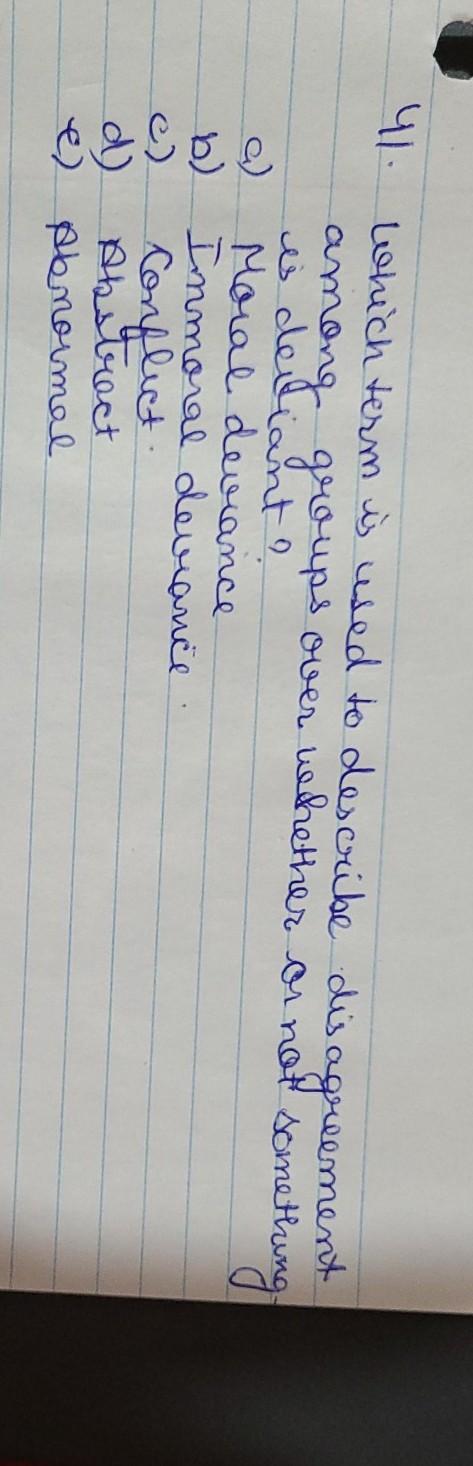 41. Which term is used to describe disagreement
among groups over whether or not something
is deviant?
a) Moral deviance
b) Immoral deviance.
c) Conflict.
d) Abstract
e) Abnormal